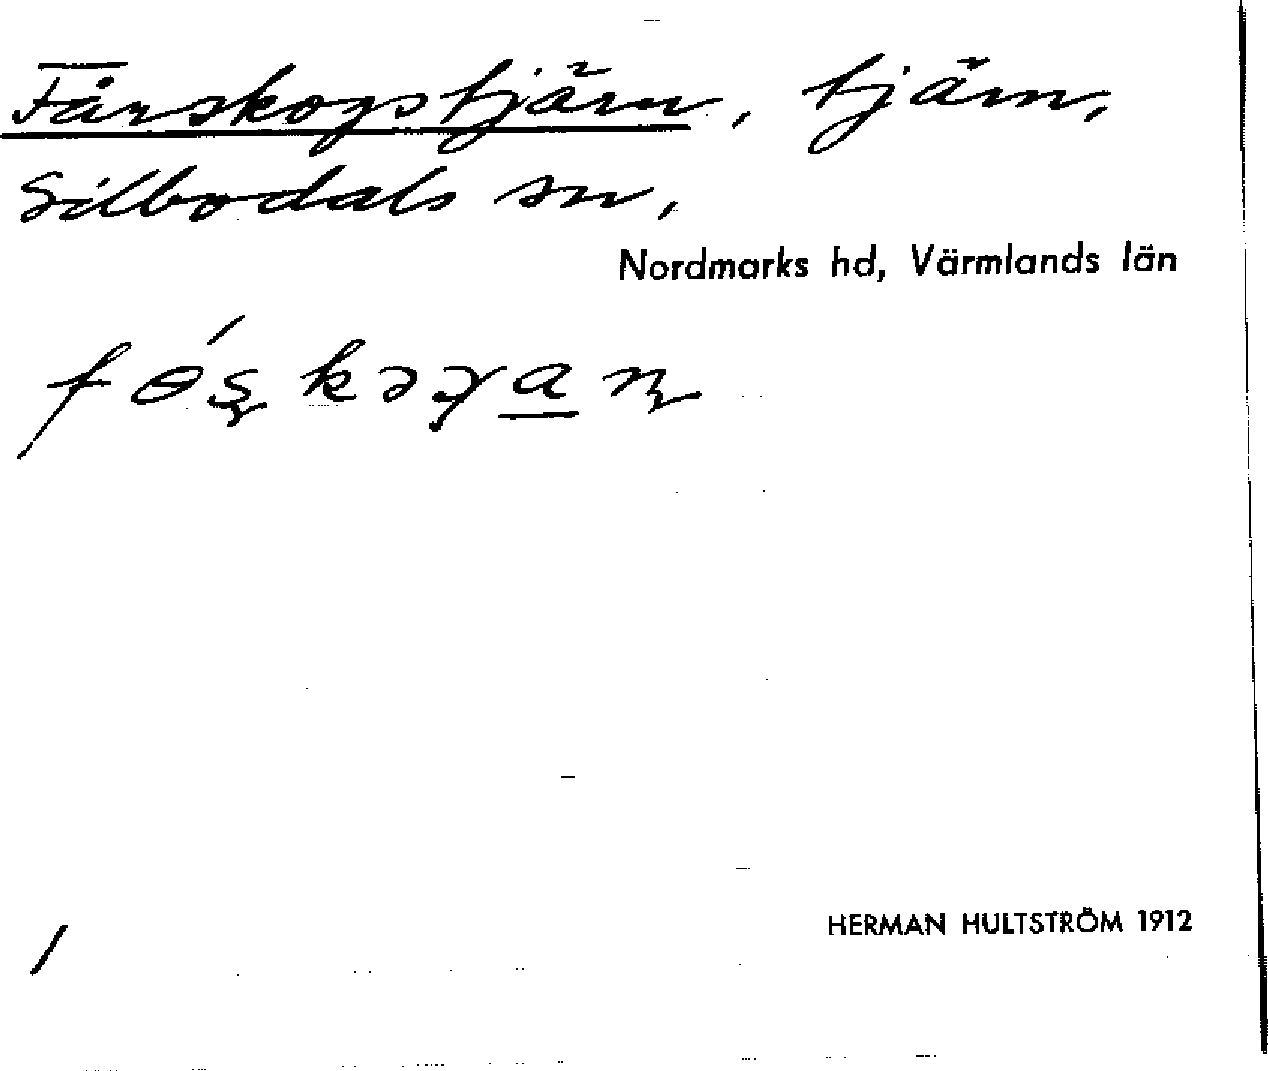 Fårskogstjärn, tjärn,
Silbodals sn,
Nordmarks hd, Värmlands län
HERMAN HULTSTRÖM 1912
/